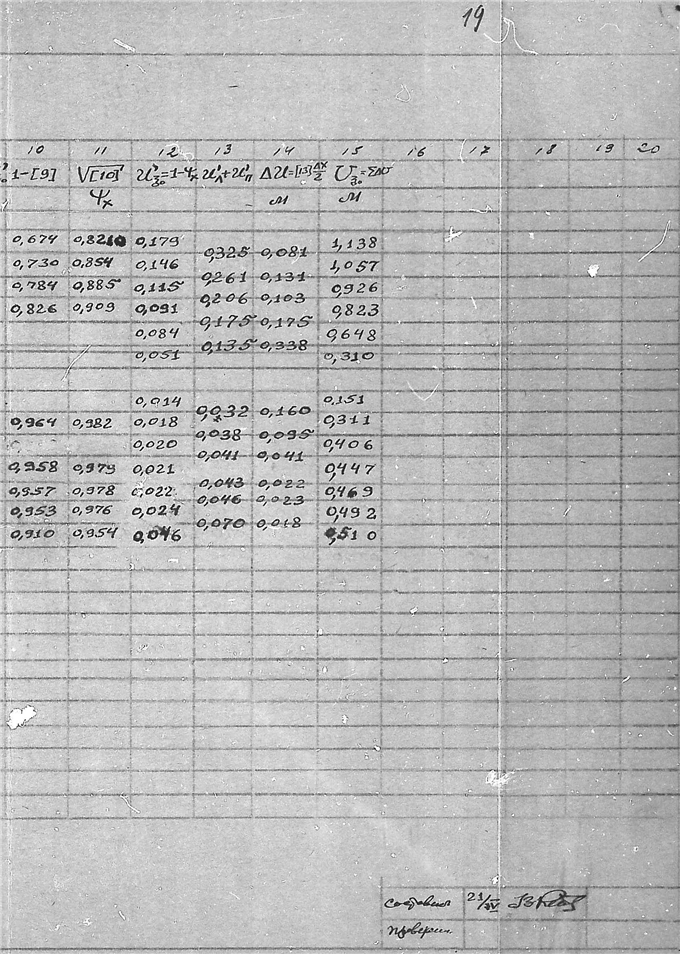 19
10 11 12 13 14 15 16 17 18 19 20
1-[9] √[10] U'ξ₀=1-Ψx U'л+U'п ΔU=[13]Δx/2 Uξ₀=ΣΔU
Ψx м м
0,674 0,8210 0,179 1,138
0,325 0,081
0,730 0,854 0,146 1,057
0,261 0,131
0,784 0,885 0,115 0,926
0,206 0,103
0,826 0,909 0,091 0,823
0,175 0,175
0,084 0,648
0,135 0,338
0,051 0,310
0,014 0,151
0,032 0,160
0,964 0,982 0,018 0,311
0,038 0,095
0,020 0,406
0,041 0,041
0,958 0,979 0,021 0,447
0,043 0,022
0,957 0,978 0,022 0,469
0,046 0,023
0,953 0,976 0,024 0,492
0,070 0,018
0,910 0,954 0,046 0,510
составил 21/IV
проверил